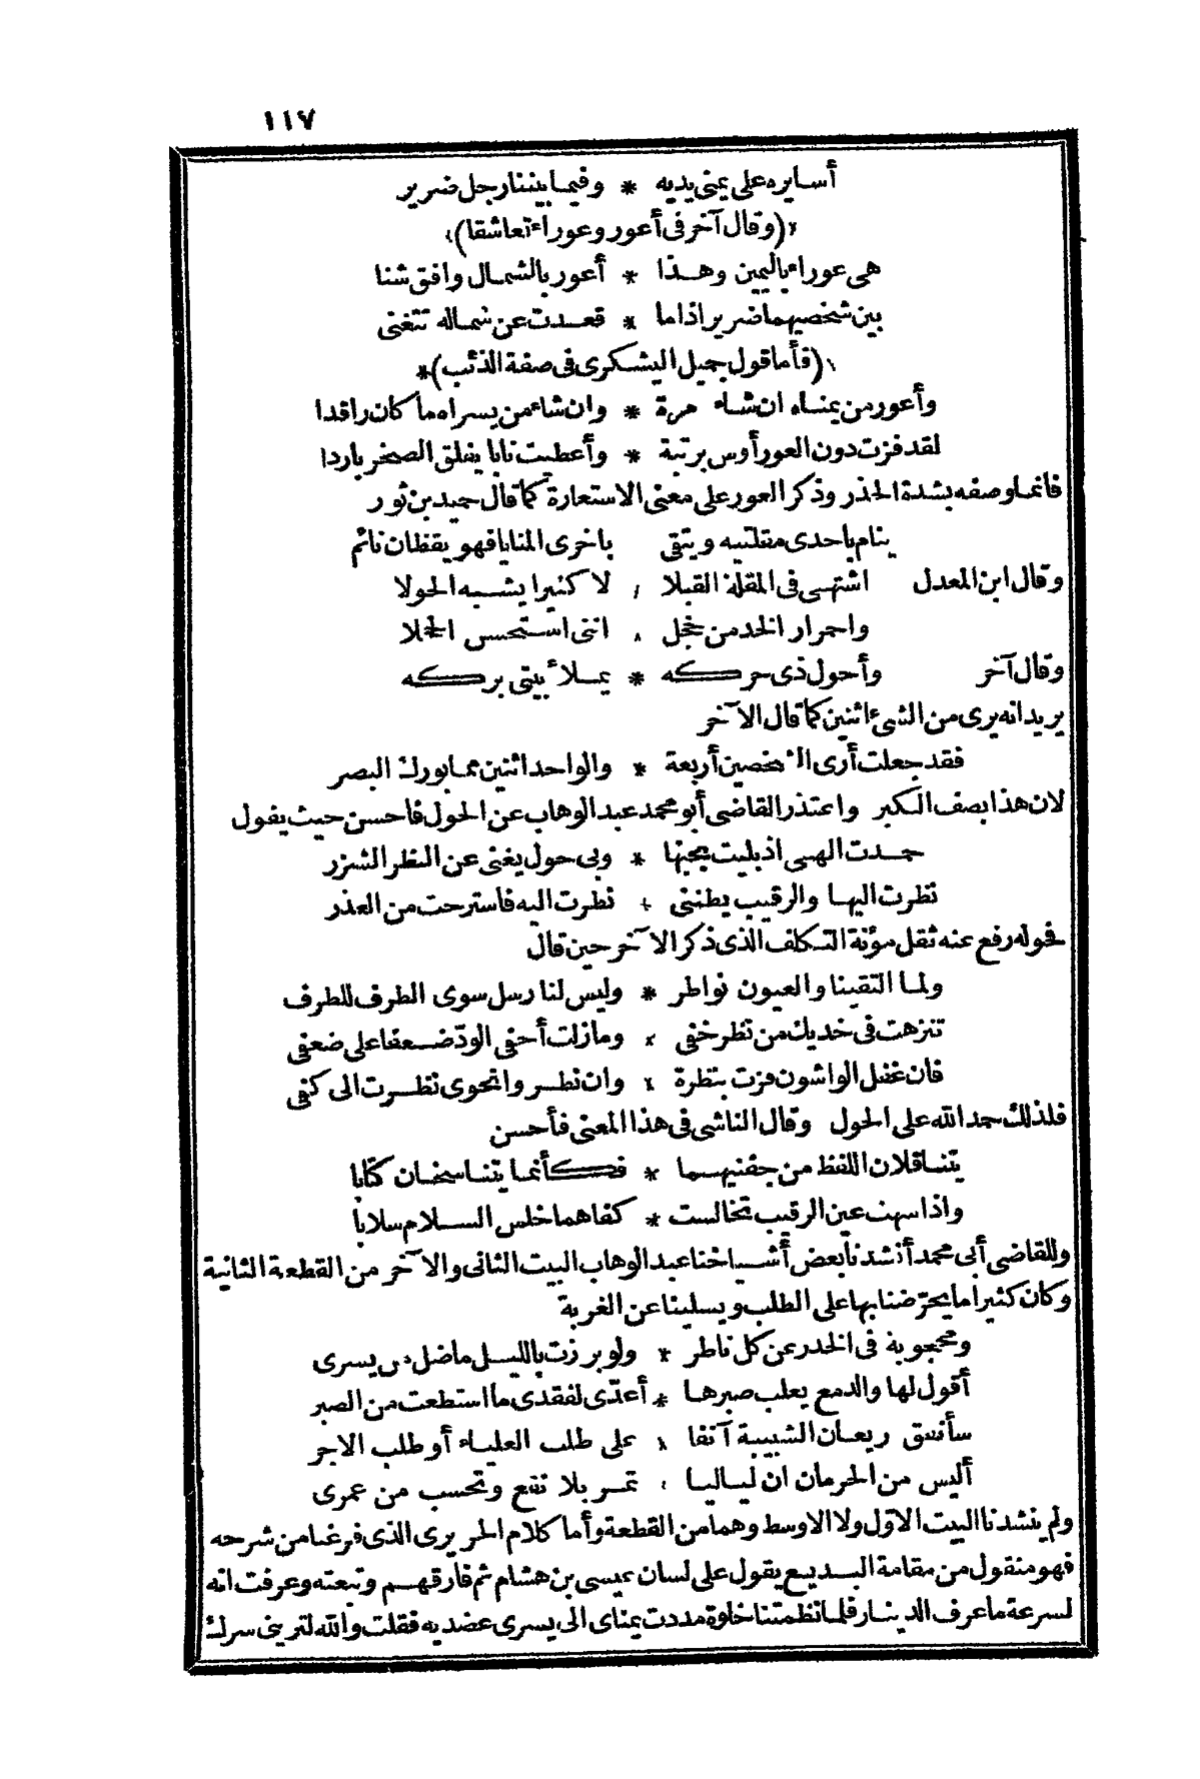 ١١٧
أسايره على يمنى يديه * وفيما بيننا رجل ضرير
(وقال آخر فى أعور وعوراء تعاشقا)
هى عوراء باليمين وهذا * أعور بالشمال وافق شنا
بين شخصيهما ضرير اذا ما * قعدت عن شماله تتغنى
(فأما قول جميل اليشكرى فى صفة الذئب)*
وأعور من يمناه ان شاء مرة * وان شاء من يسراه ما كان راقدا
لقد فزت دون العور أوس برتبة * وأعطيت نابا يفلق الصخر باردا
فانما وصفه بشدة الحذر وذكر العور على معنى الاستعارة كما قال حميد بن ثور
ينام باحدى مقلتيه ويتقى باخرى المنايا فهو يقظان نائم
وقال ابن المعدل اشتهى فى المقلة القبلا * لا كثيرا يشبه الحولا
واحمرار الخد من خجل * اننى استحسن الخجلا
وقال آخر وأحول ذى حركه * يملأ بيتى بركه
يريد انه يرى من الشئ اثنين كما قال الآخر
فقد جعلت أرى الشخصين أربعة * والواحد اثنين مما بورك البصر
لان هذا بصف الكبر واعتذر القاضى أبو محمد عبد الوهاب عن الحول فاحسن حيث يقول
حمدت الهى اذ بليت بحبها * وبى حول يغنى عن النظر الشزر
نظرت اليها والرقيب يظننى * نظرت اليه فاسترحت من العذر
فحوله رفع عنه ثقل مؤنة التكلف الذى ذكر الآخر حين قال
ولما التقينا والعيون نواظر * وليس لنا رسل سوى الطرف للطرف
تنزهت فى خديك من نظر خفى * وما زلت أخفى الودّ ضعفا على ضعفى
فان غفل الواشون فزت بنظرة * وان نظروا نحوى نظرت الى كفى
فلذلك حمد الله على الحول وقال الناشى فى هذا المعنى فأحسن
يتناقلان اللفظ من جفنيهما * فكأنما يتناسخان كتابا
واذا سهت عين الرقيب تخالست * كفاهما خلس السلام سلابا
وللقاضى أبى محمد أنشدنا بعض أشياخنا عبد الوهاب البيت الثانى والآخر من القطعة الثانية
وكان كثيرا ما يحرّضنا بها على الطلب ويسلينا عن الغربة
ومحجوبة فى الخدر عن كل ناظر * ولو برزت بالليل ما ضل من يسرى
أقول لها والدمع يغلب صبرها * أعدّى لفقدى ما استطعت من الصبر
سأنفق ريعان الشبيبة آنفا * على طلب العلياء أو طلب الاجر
أليس من الحرمان ان لياليا * تمر بلا نفع وتحسب من عمرى
ولم ينشدنا البيت الاوّل ولا الاوسط وهما من القطعة وأما كلام الحريرى الذى فرغنا من شرحه
فهو منقول من مقامة البديع يقول على لسان عيسى بن هشام ثم فارقهم وتبعته وعرفت انه
لسرعة ما عرف الدينار فلما نظمتنا خلوة مددت يمناى الى يسرى عضديه فقلت والله لترينى سرك